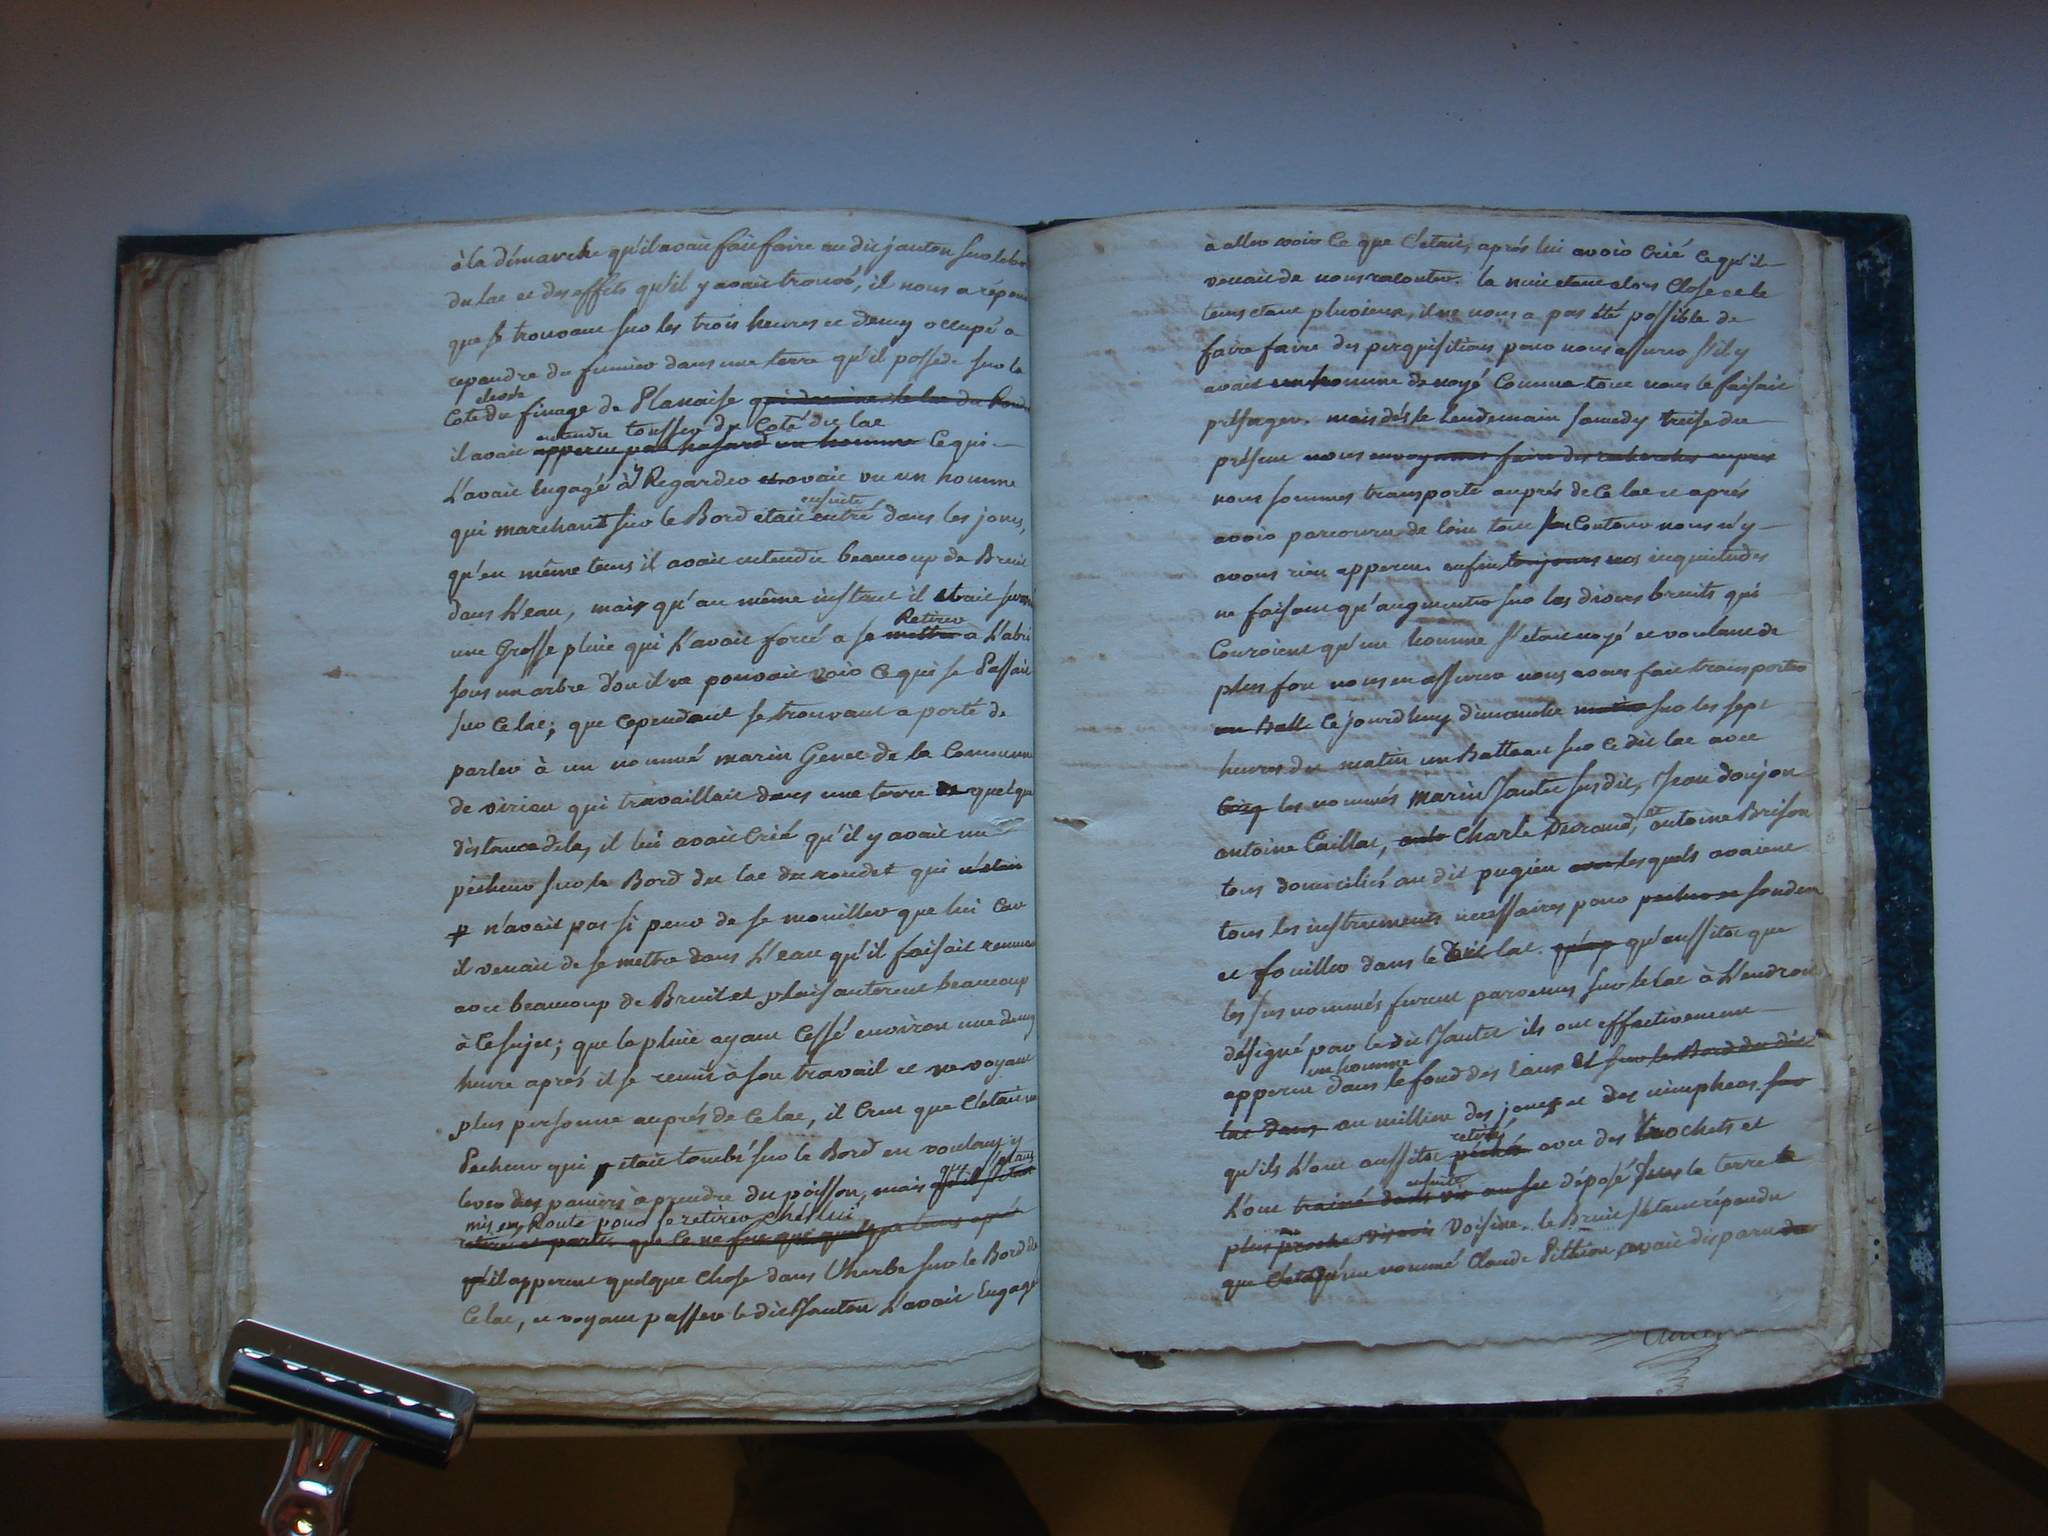 à la démarche qu'il avait fait faire au dit jauton sur le bor
du lac et des effets qu'il y avait trouvé, il nous a répon
que se trouvant sur les trois heures et demy occupé a
repandre du fumier dans une terre qu'il possede sur la
elevée
Cote du finage de Planaise qui domine le lac du Rond
entendu tousser du Coté du lac
il avait apperçu par hasard un homme Ce qui
L'avait Engagé à y Regarder et avait vu un homme
ensuite
qui marchant sur le Bord etait entré dans les joncs,
qu'en même tems il avait entendu beaucoup de Bruit
dans L'eau, mais qu'au même instant il etait survenu
Retirer
une Grosse pluie qui L'avait forcé a se mettre a L'abri
sous un arbre d'ou il ne pouvait voir Ce qui se Passait
sur Ce lac; que Cependant se trouvant a porté de
parler à un nommé marin Genet de la Commune
de virieu qui travaillait dans une terre a quelque
distance de la, il lui avait Crié qu'il y avait un
pêcheur sur le Bord du lac du rondet qui n'etait
p n'avait pas si peur de se mouiller que lui Car
il venait de se mettre dans L'eau qu'il faisait remuer
avec beaucoup de Bruit et plaisanterent beaucoup
à Ce sujet; que la pluie ayant Cessé environ une demy
heure aprés il se remit à son travail et ne voyant
plus personne auprés de Ce lac, il Crut que C'etait un
Pecheur qui etait tombé sur le Bord en voulant y
lever des paniers à prendre du poisson, mais qu'il s'etait
mis en Route pour se retirer chés lui
retiré et parti que Ce ne fut que quelque tems aprés
qu'il apperçut quelque Chose dans L'herbe sur le Bord de
Ce lac, et voyant passer le dit Jauton L'avait Engagé
à aller voir Ce que C'etait, aprés lui avoir Crié Ce qu'il
venait de nous raconter. la nuit etant alors Close et le
tems etant pluvieux, il ne nous a pas été possible de
faire faire des perquisitions pour nous assurer s'il y
avait un homme de noyé Comme tout nous le faisait
présager. mais dés le Lendemain samedy treise du
présent nous envoyames faire des recherches aupres
nous sommes transporté auprés de Ce lac et aprés
avoir parcouru de loin tout son Contour nous n'y
avons rien apperçu. enfin toujours nos inquietudes
ne faisant qu'augmenter sur les divers bruits qui
Couroient qu'un homme s'etait noyé et voulant de
plus fort nous en assurer nous avons fait transporter
un Batt Ce jourd'huy dimanche matin sur les sept
heures du matin un Batteau sur Ce dit lac avec
Cinq les nommés Marin Jautet susdit, Jean donjon
antoine Caillat, Charle Durand, et antoine Brison
tous domiciliés au dit pugieu lesquels avaient
tous les instruments necessaires pour pecher et sonder
et fouiller dans le dit lac. qu'aussitot que
les sus nommés furent parvenus sur le lac à L'endroit
désigné par le dit Jautet ils ont effectivement
un homme
apperçu dans le fond des Eaux et sur le Bord du dit
lac dans au millieu des joncs et des nimpheas sur
retiré
qu'ils L'ont aussitot pêché avec des Crochets et
ensuite
L'ont trainé dans un au sec déposé sur la terre la
plus proche voisine. le Bruit s'etant répandu
que C'etait qu'un nommé Claude Pithion avait disparu de